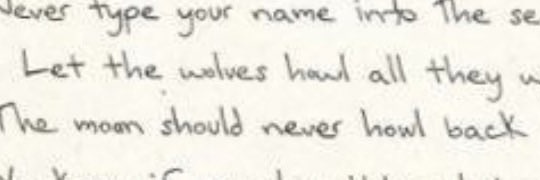 Never type your name into The se
Let the wolves howl all they w
The moon should never howl back